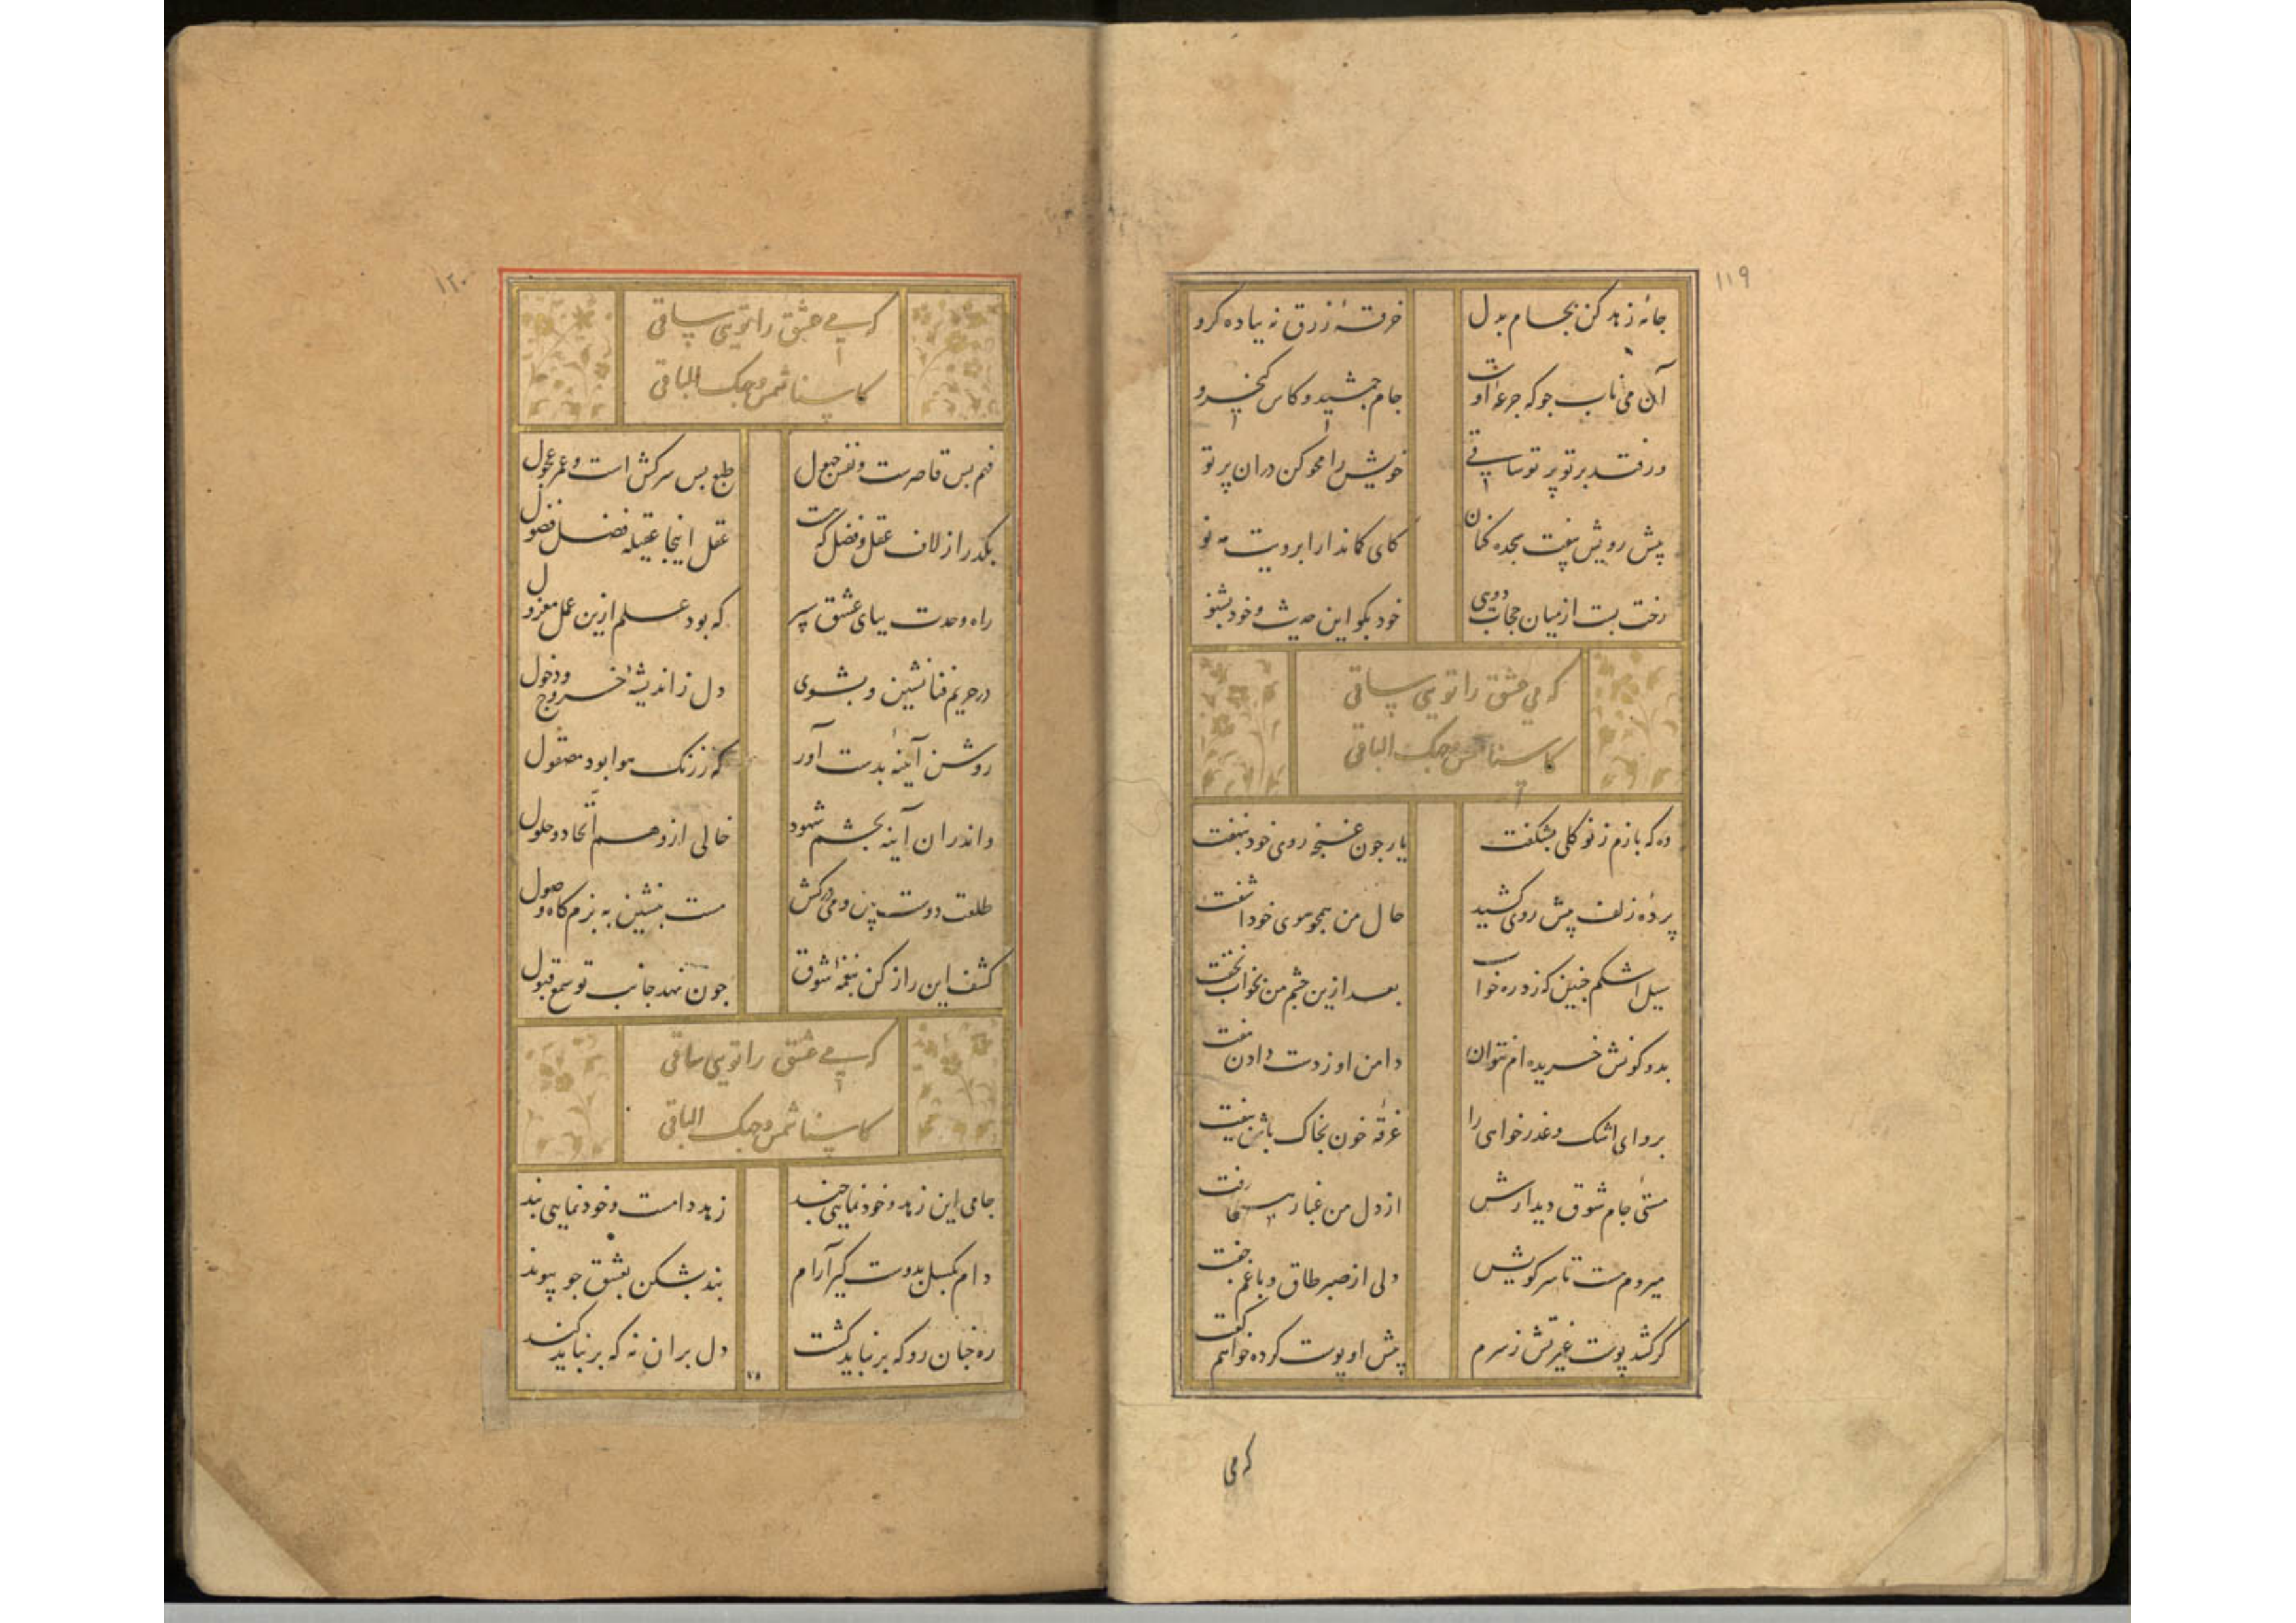 ١١٩
جامهٔ زهد کن بجام بدل خرقهٔ زرق نه بباده کرو
آن می ناب جو که جرعهٔ اوست جام جمشید و کاس کیخسرو
ور فتد بر تو پرتو ساقی خویش را محو کن در ان پرتو
پیش رویش بیفت سجده کنان کای کماندار ابرویت مه نو
رخت بست از میان حجاب دوی خود بکو این حدیث و خود بشنو
که می عشق را تویی ساقی
کاسنا شمس وجهک الباقی
ده که بازم ز نو کلی بشکفت یار جون غنجه روی خود بنهفت
پردهٔ زلف پیش روی کشید حال من همجو موی خود اشفت
سیل اشکم جنین که زد ره خواب بعد ازین جشم من نخواب نخفت
بدو کونش خریده ام نتوان دامن او ز دست دادن مفت
برو ای اشک و عذرخواهی را غرقه خون بخاک پاش بیفت
مستی جام شوق دیدارش از دل من غبار هستی رفت
میروم مست تا سر کویش دلی از صبر طاق و با غم جفت
کر کشد پوست غیرتش ز سرم پیش او پوست کرده خواهم کفت
که می
١٢٠
که می عشق را تویی ساقی
کاسنا شمس وجهک الباقی
فهم بس قاصرست و نفس جهول طبع بس سرکش است و عمر عجول
بکذر از لاف عقل و فضل که هست عقل اینجا عقیله فضل فضول
راه وحدت بپای عشق سپر که بود علم ازین عمل معزول
در حریم فنا نشین و بشوی دل ز اندیشهٔ خروج و دخول
روشن آینهٔ بدست آور که ز زنک هوا بود مصقول
واندر ان آینه بجشم شهود خالی از وهم اتحاد و حلول
طلعت دوست بین و می درکش مست بنشین به بزمکاه وصول
کشف این راز کن بنغمهٔ شوق جون نهد جانب تو سمع قبول
که می عشق را تویی ساقی
کاسنا شمس وجهک الباقی
جامی این زهد و خودنمایی جند زهد دامست و خودنمایی بند
دام بکسل بدوست کیر آرام بند بشکن بعشق جو پیوند
ره جنان رو که برنباید کشت دل بران نه که برنباید کند